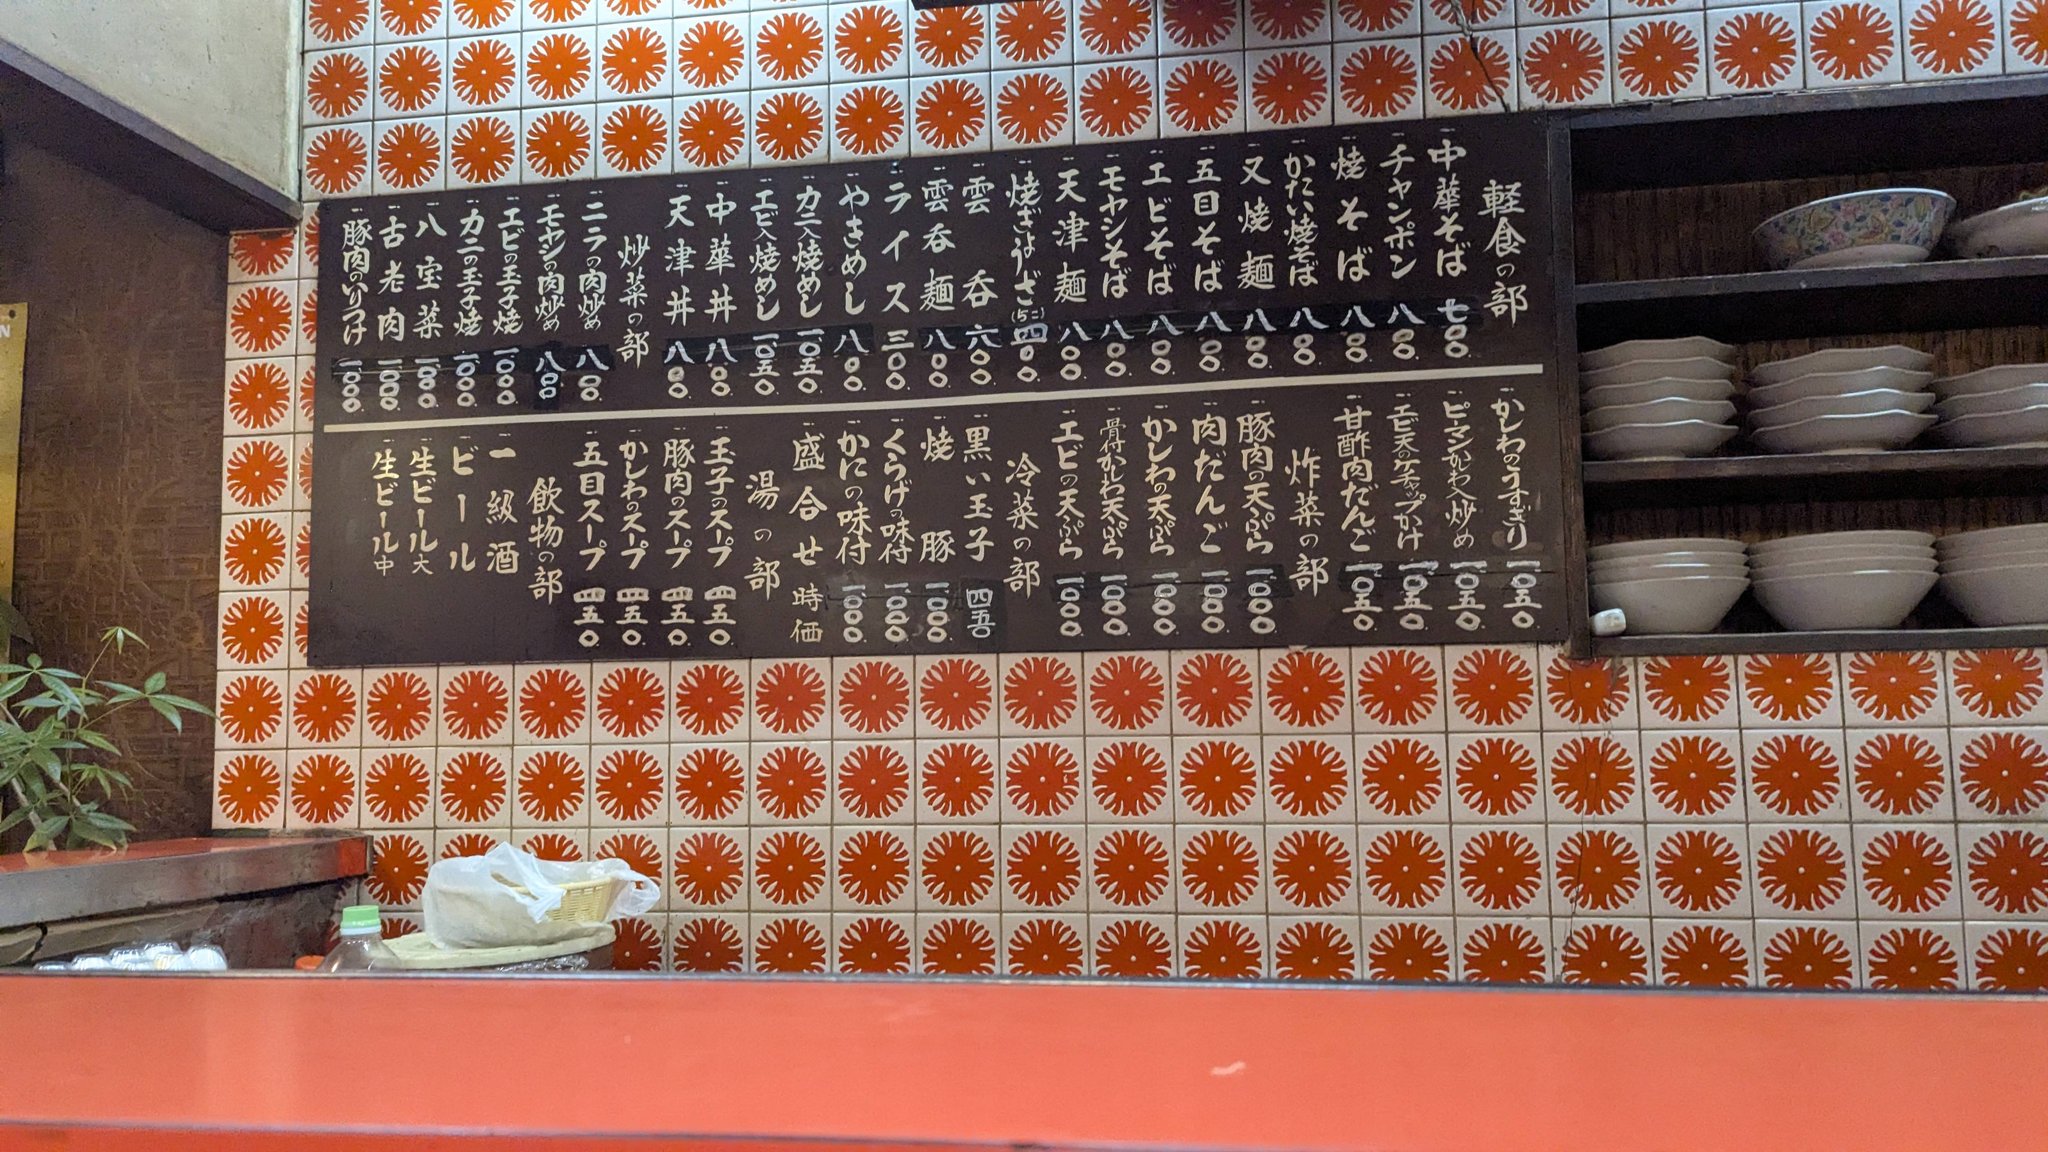 軽食の部
一中華そば 七〇〇
一チャンポン 八〇〇
一焼そば 八〇〇
一かたい焼そば 八〇〇
一叉焼麺 八〇〇
一五目そば 八〇〇
一エビそば 八〇〇
一モヤシそば 八〇〇
一天津麺 八〇〇
一焼ぎょうざ(5こ) 四〇〇
一雲呑 六〇〇
一雲呑麺 八〇〇
一ライス 三〇〇
一やきめし 八〇〇
一カニ入焼めし 一〇五〇
一エビ入焼めし 一〇五〇
一中華丼 八〇〇
一天津丼 八〇〇
炒菜の部
一ニラの肉炒め 八〇〇
一モヤシの肉炒め 八〇〇
一エビの玉子焼 一〇〇〇
一カニの玉子焼 一〇〇〇
一八宝菜 一〇〇〇
一古老肉 一〇〇〇
一豚肉のいりつけ 一〇〇〇
一かしわのうすぎり 一〇五〇
一ピーマンかしわ入炒め 一〇五〇
一エビ天のケチャップかけ 一〇五〇
一甘酢肉だんご 一〇五〇
炸菜の部
一豚肉の天ぷら 一〇〇〇
一肉だんご 一〇〇〇
一かしわの天ぷら 一〇〇〇
一骨付かしわ天ぷら 一〇〇〇
一エビの天ぷら 一〇〇〇
冷菜の部
一黒い玉子 四五〇
一焼豚 一〇〇〇
一くらげの味付 一〇〇〇
一かにの味付 一〇〇〇
一盛合せ 時価
湯の部
一玉子のスープ 四五〇
一豚肉のスープ 四五〇
一かしわのスープ 四五〇
一五目スープ 四五〇
飲物の部
一一級酒
一ビール
一生ビール大
一生ビール中
N